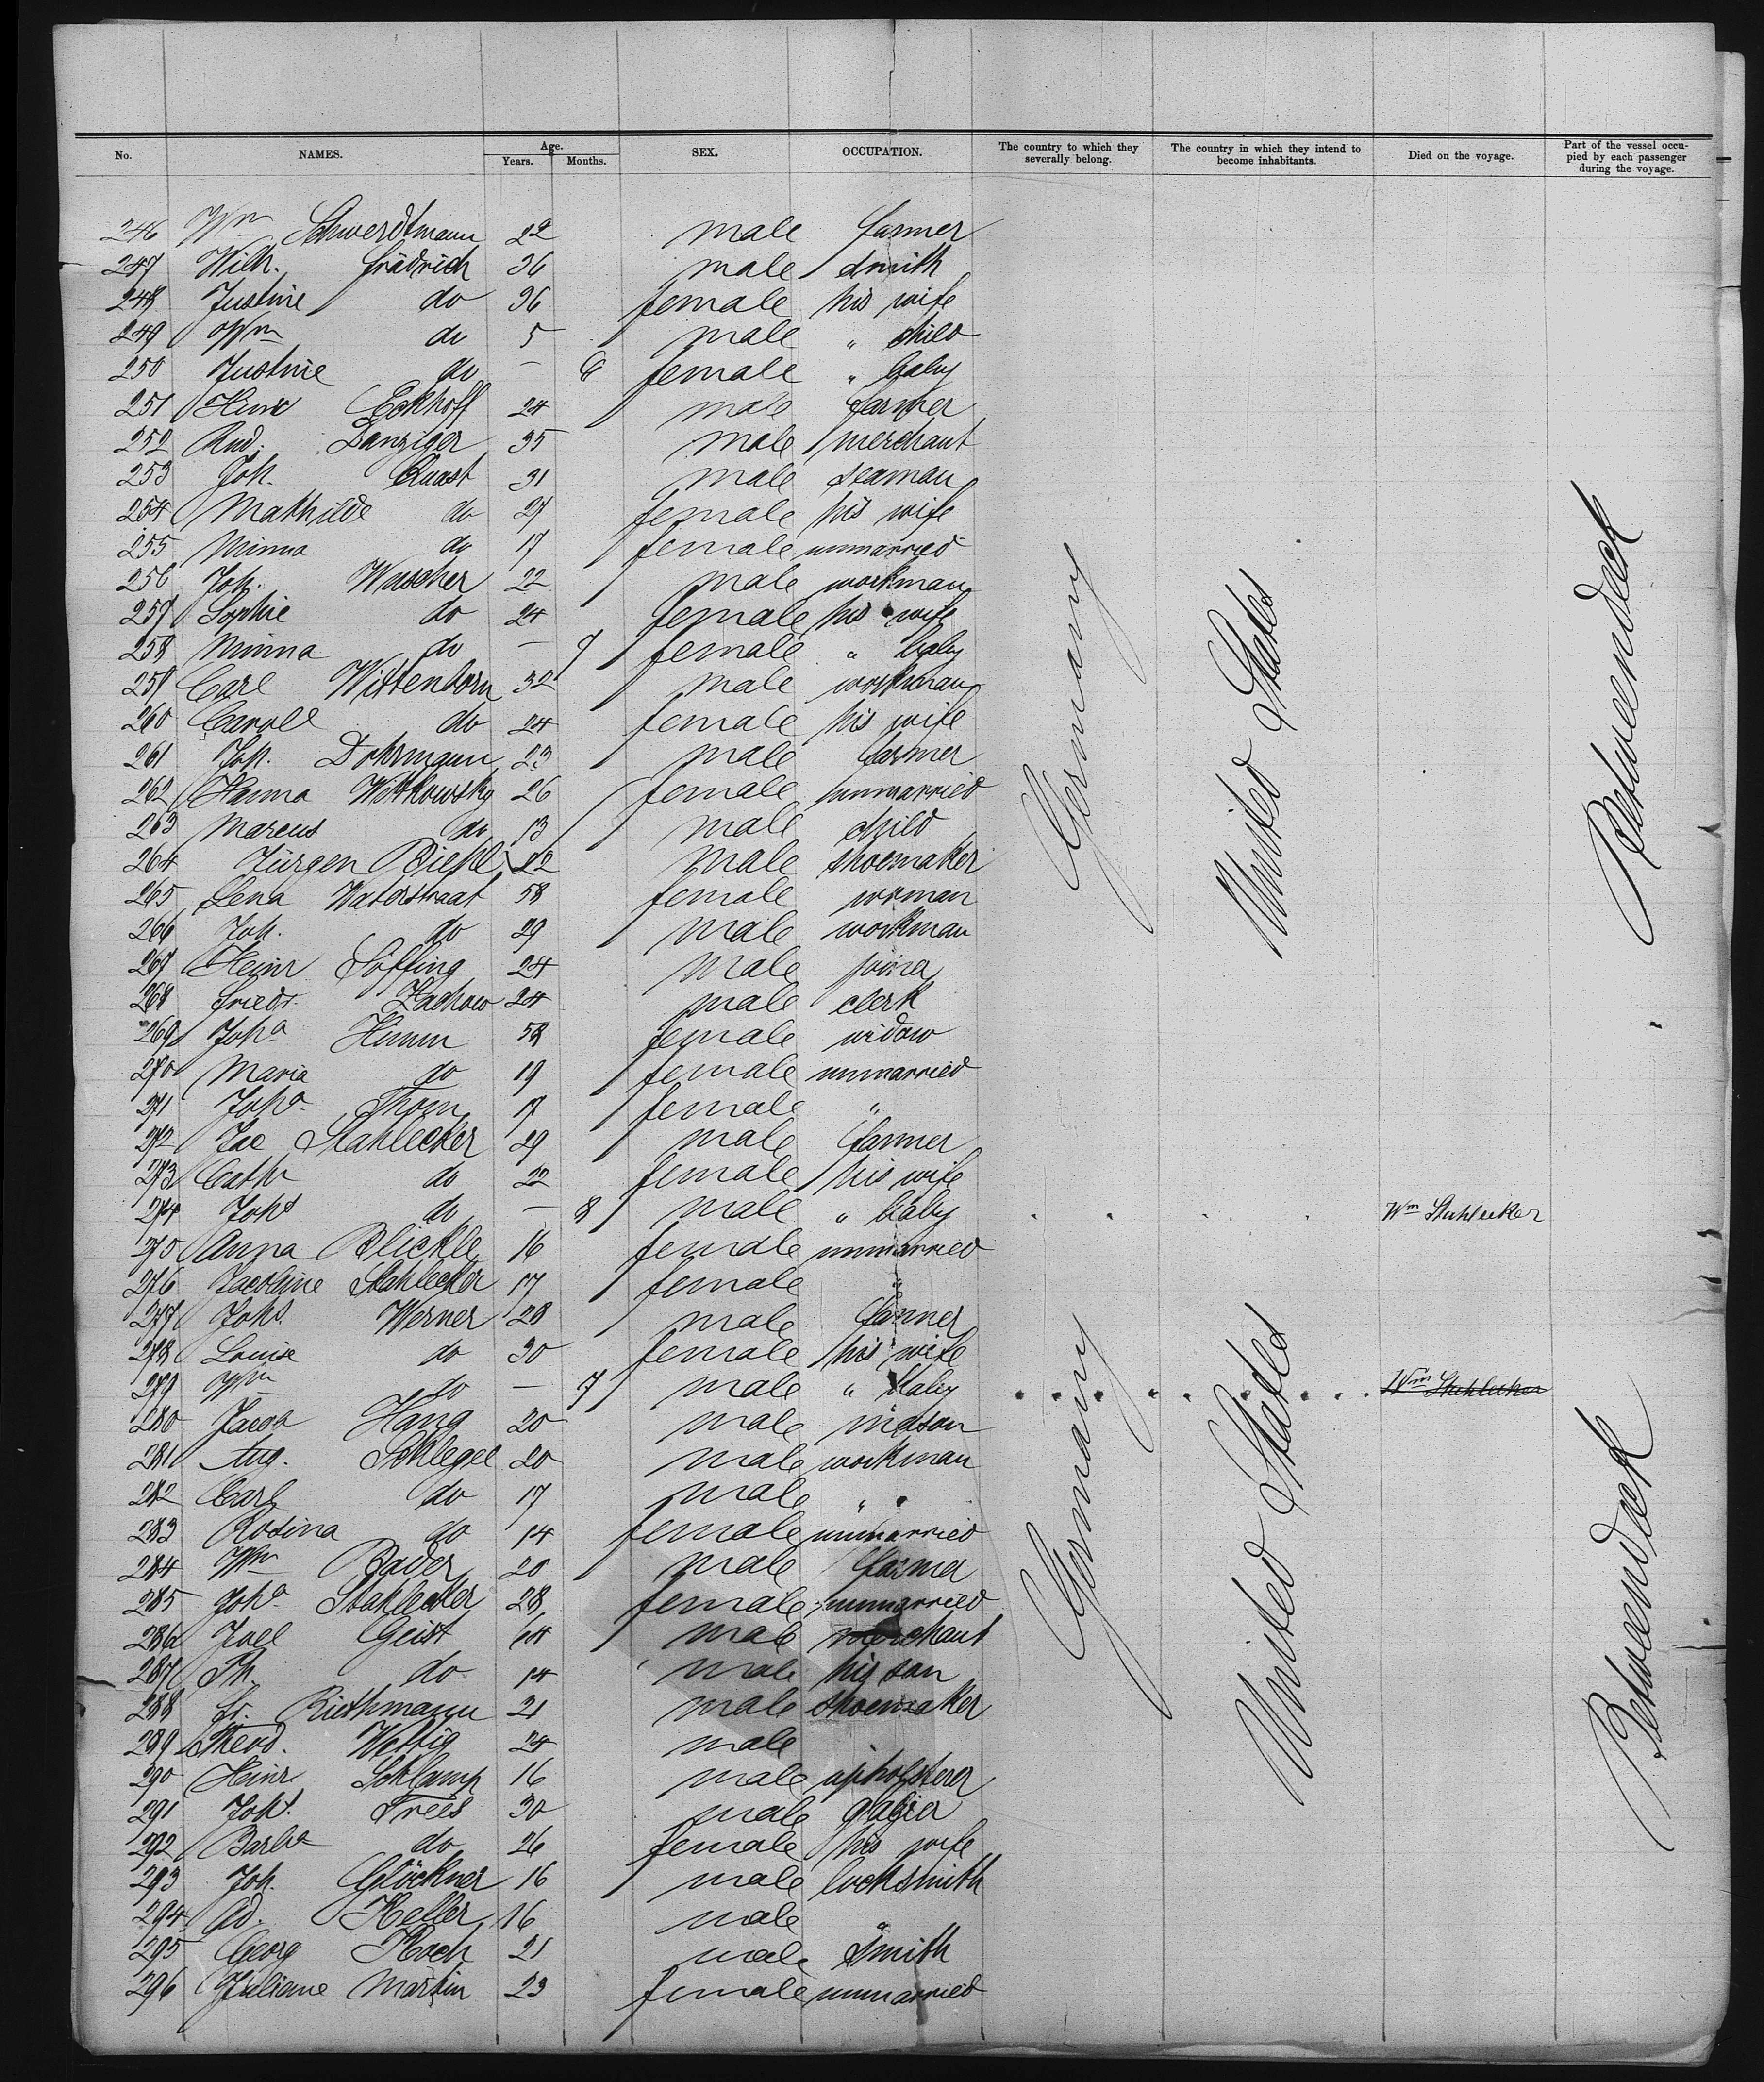 No. NAMES. Age. Years. Months. SEX. OCCUPATION. The country to which they severally belong. The country in which they intend to become inhabitants. Died on the voyage. Part of the vessel occupied by each passenger during the voyage.
246 Wm Schwerdtmann 22 male farmer
247 Wilh. Frädrich 36 male smith
248 Justine do 36 female his wife
249 Wm do 5 male " child
250 Justine do — 6 female " baby
251 Hinr Eckhoff 24 male farmer
252 Rud. Danziger 35 male merchant
253 Joh. Quast 31 male seaman
254 Mathilde do 27 female his wife
255 Minna do 17 female unmarried
256 Joh. Wascher 22 male workman
257 Sophie do 24 female his wife
258 Minna do — 9 female " baby
259 Carl Wittenborn 32 male workman
260 Caroll do 24 female his wife
261 Joh. Dohrmann 23 male farmer
262 Hanna Wittkowsky 26 female unmarried
263 Marcus do 13 male child
264 Jürgen Biehl 22 male shoemaker
265 Lena Waterstraat 58 female woman
266 Joh. do 29 male workman
267 Heinr Söffing 24 male joiner
268 Friedr. Zachow 24 male clerk
269 Joha Himm 52 female widow
270 Maria do 19 female unmarried
271 Joha Thom 17 female "
272 Jac Stahlecker 29 male farmer
273 Cath do 22 female his wife
274 Johs do — 8 male " baby Wm Stahlecker
275 Anna Blickle 16 female unmarried
276 Jacobine Stahlecker 17 female "
277 Johs. Werner 28 male farmer
278 Louise do 30 female his wife
279 Wm do — 7 male " baby Wm Stahlecker
280 Jacob Hang 20 male mason
281 Aug. Schlegel 20 male workman
282 Carl do 17 male "
283 Rosina do 14 female unmarried
284 Wm Bader 20 male farmer
285 Joha Stahlecker 28 female unmarried
286 Joel Geist 64 male merchant
287 Ph. do 14 male his son
288 Fr. Riethmann 21 male shoemaker
289 Theod. Wettig 24 male
290 Heinr Schlamp 16 male upholsterer
291 Joh. Frees 30 male glazier
292 Barba do 26 female his wife
293 Joh. Glöckner 16 male locksmith
294 Ad. Keller 16 male "
295 Georg Koch 21 male smith
296 Juliane Martin 23 female unmarried
Germany
United States
Betweendeck
Germany
United States
Betweendeck